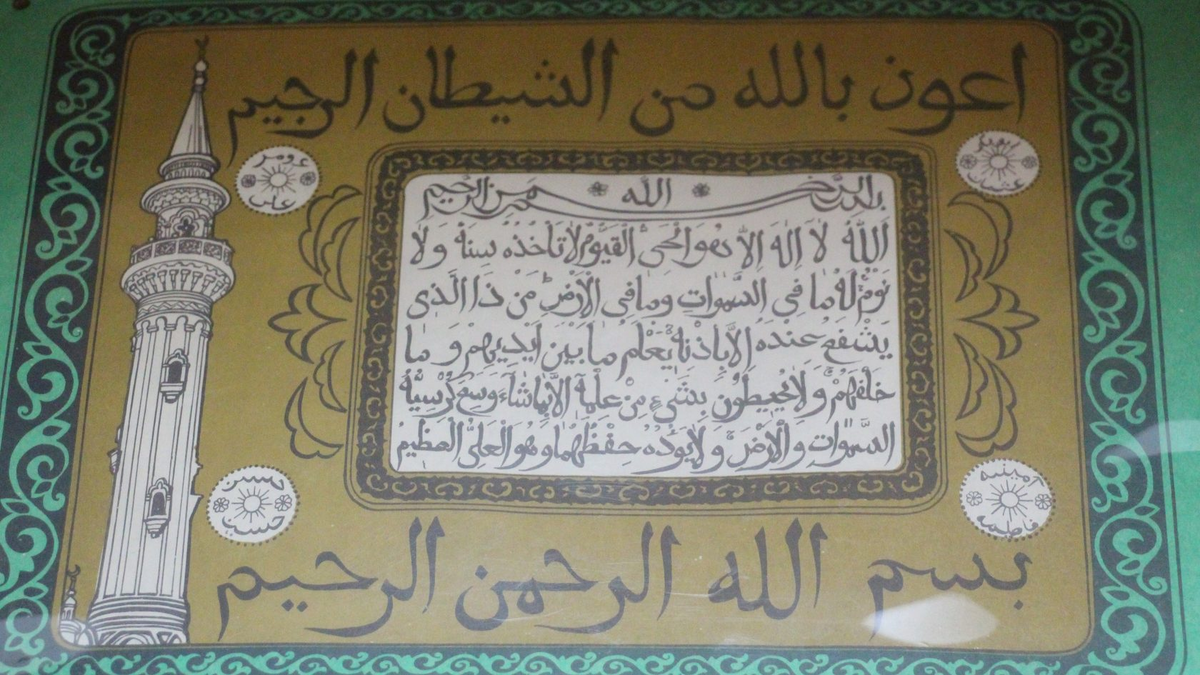 اعوذ بالله من الشيطان الرجيم
ابوبكر
عثمان
عومر
على
بسم الله الرحمن الرحيم
اَللّٰهُ لَا اِلٰهَ اِلَّا هُوَ الْحَىُّ الْقَيُّوْمُ لَا تَأْخُذُهُ سِنَةٌ وَلَا
نَوْمٌ لَهُ مَا فِى السَّمٰوَاتِ وَمَا فِى الْاَرْضِ مَنْ ذَا الَّذِى
يَشْفَعُ عِنْدَهُ اِلَّا بِاِذْنِهِ يَعْلَمُ مَا بَيْنَ اَيْدِيْهِمْ وَمَا
خَلْفَهُمْ وَلَا يُحِيْطُوْنَ بِشَىْءٍ مِنْ عِلْمِهِ اِلَّا بِمَا شَاءَ وَسِعَ كُرْسِيُّهُ
السَّمٰوَاتِ وَالْاَرْضَ وَلَا يَؤُدُهُ حِفْظُهُمَا وَهُوَ الْعَلِىُّ الْعَظِيْمُ
فاطمه
حسن
حسين
بسم الله الرحمن الرحيم